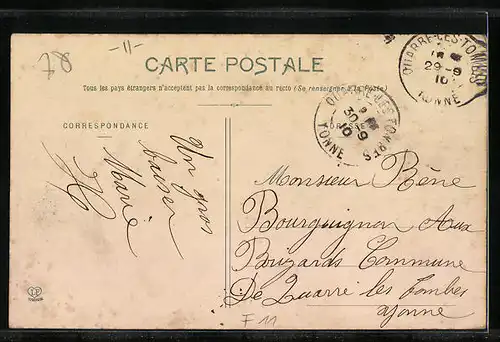 78
-11-
CARTE POSTALE
Tous les pays étrangers n'acceptent pas la correspondance au recto (Se renseigner à la Poste)
QUARRÉ-LES-TOMBES
29-9
10
YONNE
QUARRÉ-LES-TOMBES
30-9
10
YONNE
CORRESPONDANCE
Un gros
baiser
Marie
Monsieur Réne
Bourguignon Aux
Buzards Commune
De Quarré les Tombes
Yonne
F 11